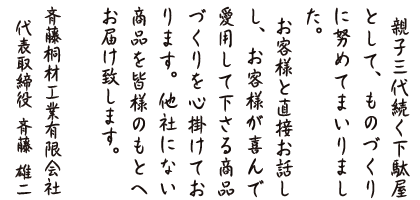 親子三代続く下駄屋
として、ものづくり
に努めてまいりまし
た。
お客様と直接お話し
し、お客様が喜んで
愛用して下さる商品
づくりを心掛けてお
ります。他社にない
商品を皆様のもとへ
お届け致します。
斉藤桐材工業有限会社
代表取締役 斉藤 雄二